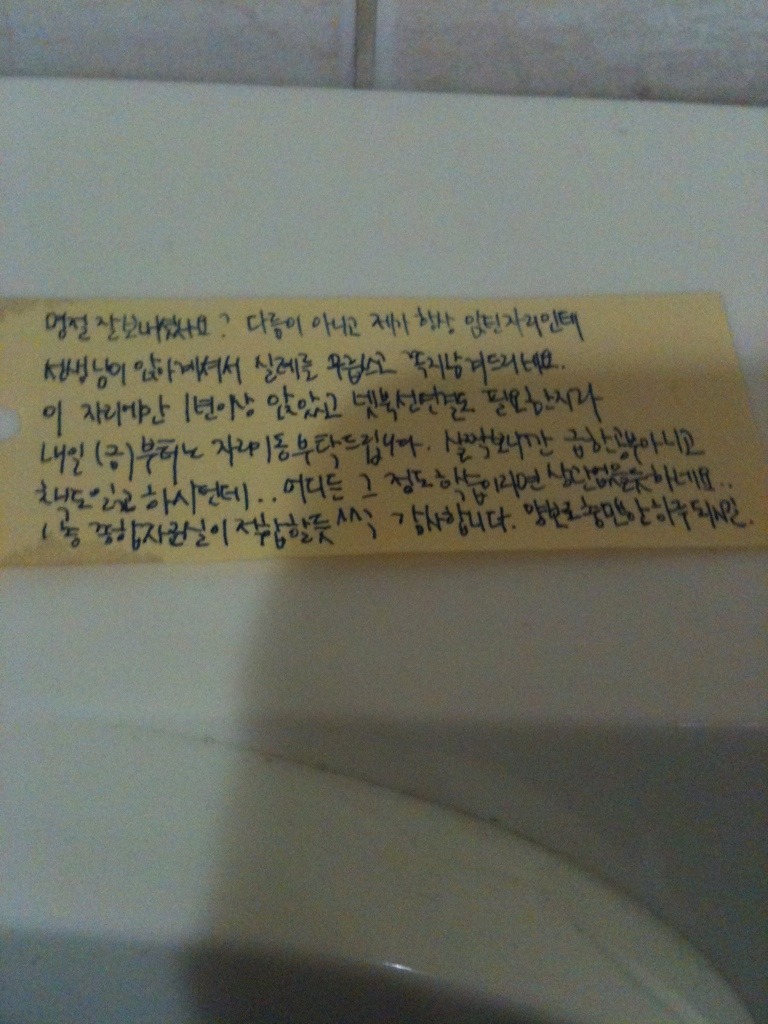 명절 잘 보내셨나요? 다름이 아니고 제가 항상 앉던자리인데
선생님이 앉아계셔서 실례를 무릅쓰고 쪽지남겨드리네요.
이 자리에만 1년이상 앉았고 넷북선연결도 필요한지라
내일 (금)부터는 자리이동부탁드립니다. 살짝보니간 급한공부아니고
책도읽고 하시던데.. 어디든 그 정도학습이라면 상관없을듯하네요..
1층 종합자료실이 적합할듯 ^^; 감사합니다. 양보로충만한하루되시길.